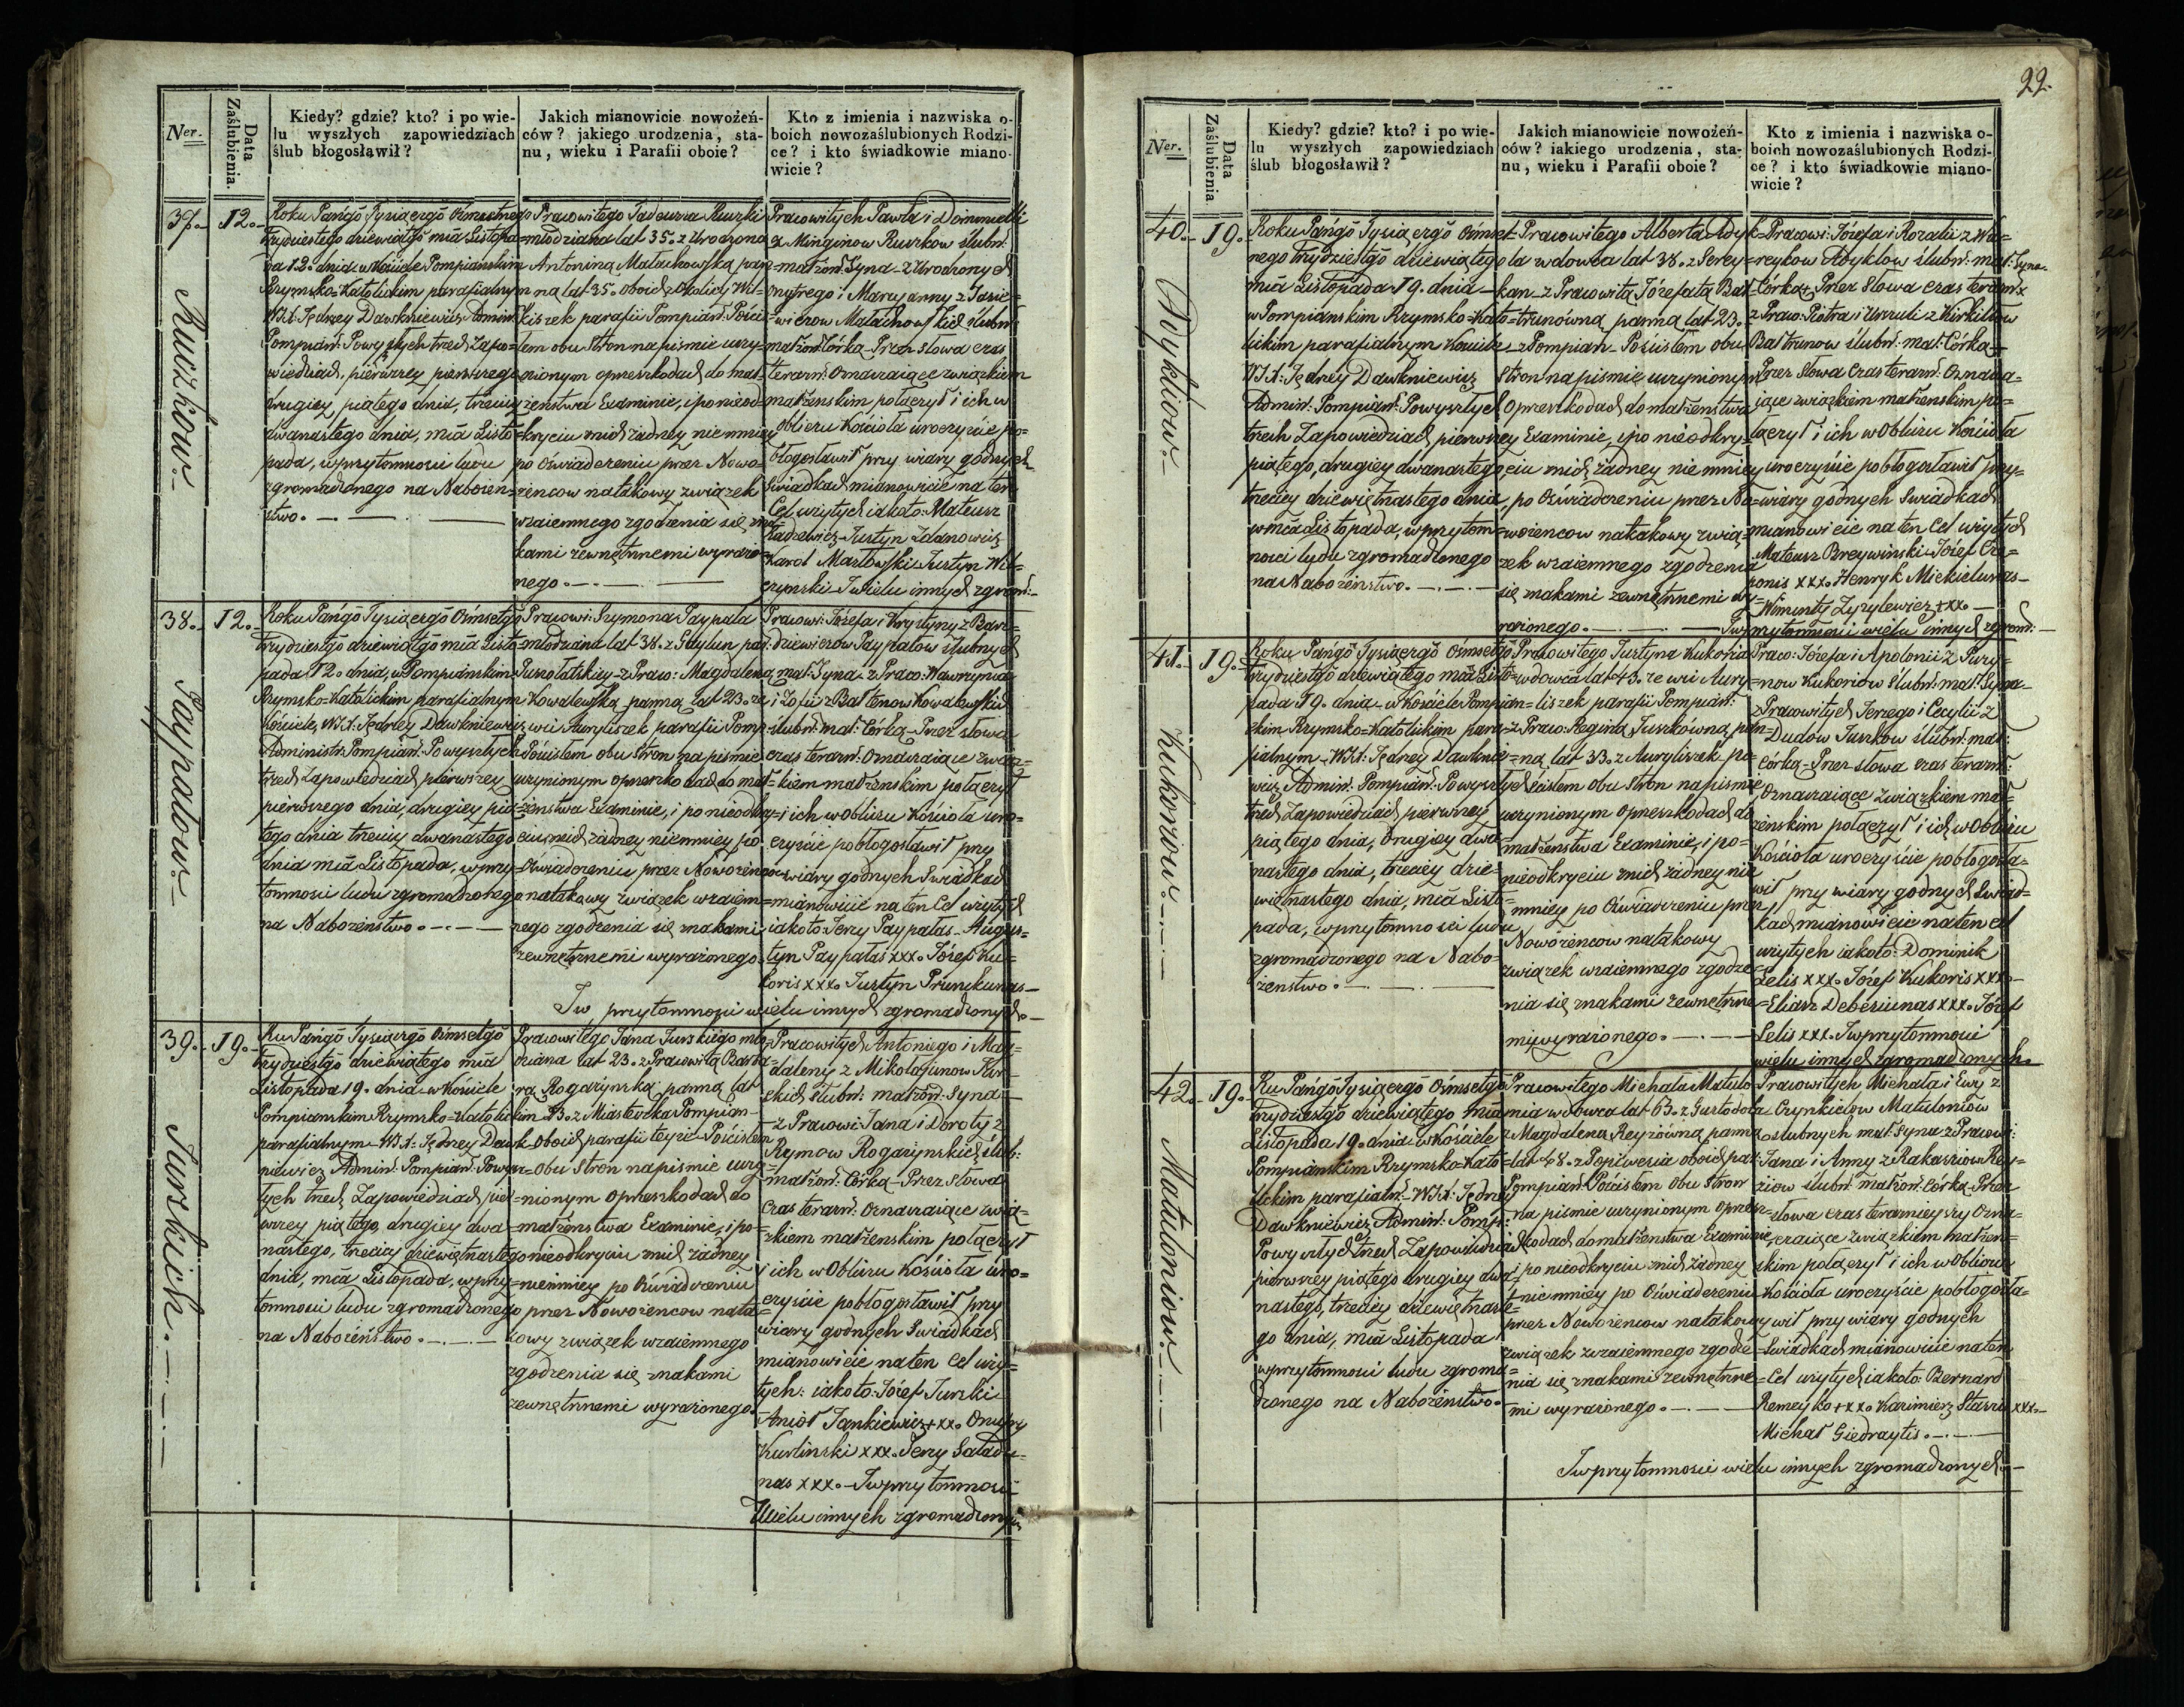 Ner.
Data Zaślubienia.
Kiedy? gdzie? kto? i po wie-
lu wyszłych zapowiedziach
ślub błogosławił?
Jakich mianowicie nowożeń-
ców? jakiego urodzenia, sta-
nu, wieku i Parafii oboie?
Kto z imienia i nazwiska o-
boich nowozaślubionych Rodzi-
ce? i kto świadkowie miano-
wicie?
37.
12.
Ruszkow.
Roku Pańgo Tysiącgo Ośmsetnego
Trzydziestego dziewiątgo mca Listopa-
da 12. dnia w Kościele Pompianskim
Rzymsko-Katolickim parafialnym
WJX: Jędrzey Dawkniewicz Admin:
Pompiań: Po wyszłych trzech Zapo-
wiedziach, pierwszey pierwszego
drugiey piątego dnia, trzeciey
dwanastego dnia, mca Listo-
pada, w przytomności ludu
zgromadzonego na Nabożeń-
stwo.
Pracowitego Tadeusza Ruszki
młodziana lat 35. z Urodzoną
Antoniną Małachowską pan-
ną lat 35. oboich z Okolicy Wil-
kiszek parafii Pompiań: Pościs-
łem obu Stron na pismie uczy-
nionym o przeszkodach do mał-
żenstwa Examinie, i po nieod-
kryciu z nich żadney nie mniey
po Oświadczeniu przez Nowo-
żencow na takowy związek
wzaiemnego zgodzenia się zna-
kami zewnętrznemi wyrażo-
nego.
Pracowitych Pawła i Dominiki
z Minginow Ruszkow ślubn:
małżoń: Syna - z Urodzonych
Onufrego i Maryanny z Jasie-
wiczow Małachowskich ślubn:
małżoń: Córką - Przez słowa czas
terazń: Oznaczaiące związkiem
małżenskim połączył i ich w
obliczu Kościoła uroczyście po-
błogosławił przy wiary godnych
Swiadkach mianowicie na ten
Cel użytych iakoto: Mateusz
Radzewicz - Justyn Zdanowicz
Karol Masłowski - Justyn Wil-
czynski - I wielu innych zgrom:
38.
12.
Paypałow.
Roku Pańgo Tysiącgo Ośmsetgo
Trzydziestgo dziewiątgo mca Listo-
pada 12. dnia, w Pompianskim
Rzymsko-Katolickim parafialnym
Kościele, WJX: Jędrzey Dawkniewicz
Administr: Pompiań: Po wyszłych
trzech Zapowiedziach, pierwszey
pierwszego dnia, drugiey pią-
tego dnia trzeciey dwanastego
dnia mca Listopada, w przy-
tomnosci ludu zgromadzonego
na Nabożenstwo.
Pracowi: Szymona Paypała
młodziana lat 38. z Gaylun par:
z Praco: Magdaleną
Kowalewską panną lat 23. ze
wsi Auryliszek parafii Pomp:
Pościsłem obu Stron na pismie
uczynionym o przeszkodach do mał-
żenstwa Examinie, i po nieodkry-
ciu z nich żadney niemniey po
Oświadczeniu przez Nowożencow
na takowy związek wzaiem-
nego zgodzenia się znakami
zewnętrznemi wyrażonego.
Pracowi: Józefa i Krystyny z Barz-
dziewiczow Paypałow ślubnych
mał: Syna - z Praco: Wawrzynca
i Zofii z Baltenow Kowalewskich
ślubn: mał: Córką - Przez słowa
czas terazń: Oznaczaiące związ-
kiem małżenskim połączył
i ich w obliczu Kościoła uro-
czyście pobłogosławił przy
wiary godnych Swiadkach
mianowicie na ten Cel użytych
iakoto: Jerzy Paypałas - Augus-
tyn Paypałas xxx. Józef Ku-
koris xxx. Justyn Prunskunas
I w przytomności wielu innych zgromadzonych.
39.
19.
Jurskich.
Ru Pańgo Tysiącgo Ośmsetgo
Trzydziestgo dziewiątego mca
Listopada 19. dnia w Kościele
Pompianskim Rzymsko-Katolickim
parafialnym WJX: Jędrzey Dawk-
niewicz Admin: Pompiań: Powysz-
łych trzech Zapowiedziach pier-
wszey piątego, drugiey dwa-
nastego, trzeciey dziewiętnastego
dnia, mca Listopada, w przy-
tomnosci ludu zgromadzonego
na Nabożeństwo.
Pracowitego Jana Jurskiego mło-
dziana lat 23. z Pracowitą Barba-
rą Rogazynską panną lat
23. z Miasteczka Pompian
oboich parafii teyże Pościsłem
obu Stron na pismie uczy-
nionym o przeszkodach do
małżenstwa Examinie, i po-
nieodkryciu z nich żadney
niemniey po Oświadczeniu
przez Nowożencow na ta-
kowy związek wzaiemnego
zgodzenia się znakami
zewnętrznemi wyrażonego.
Pracowitych Antoniego i Mag-
daleny z Mikołajunow Jur-
skich ślubn: małżoń: Syna
z Pracowi: Jana i Doroty z
Rymow Rogazynskich ślub:
małżoń: Córką - Przez słowa
czas terazń: Oznaczaiące zwią-
zkiem małżenskim połączył
i ich w Obliczu Kościoła uro-
czyście pobłogosławił przy
wiary godnych Swiadkach
mianowicie na ten Cel uży-
tych: iakoto: Józef Jurski
Anioł Jankiewicz xxx. Onufry
Kurlinski xxx. Jerzy Saladu-
nas xxx. - I w przytomności
Wielu innych zgromadzonych
22.
Ner.
Data Zaślubienia
Kiedy? gdzie? kto? i po wie-
lu wyszłych zapowiedziach
ślub błogosławił?
Jakich mianowicie nowożeń-
ców? iakiego urodzenia, sta-
nu, wieku i Parafii oboie?
Kto z imienia i nazwiska o-
boich nowozaślubionych Rodzi-
ce? i kto świadkowie miano-
wicie?
40.
19.
Adyklow.
Roku Pańgo Tysiącgo Ośmset-
nego Trzydziestgo dziewiątego
mca Listopada 19. dnia
w Pompianskim Rzymsko-Kato-
lickim parafialnym Kościele
WJX: Jędrzey Dawkniewicz
Admin: Pompiań: Powyszłych
trzech Zapowiedziach pierwszey
piątego, drugiey dwanastego,
trzeciey dziewiętnastego dnia,
w mca Listopada, w przytom-
nosci ludu zgromadzonego
na Nabożeństwo.
Pracowitego Alberta Adyk-
la wdowca lat 38. z Serey-
kan - z Pracowitą Józefatą Bał-
trunówną panną lat 23.
z Pompian - Pościsłem obu
Stron na pismie uczynionym
o przeszkodach do małżenstwa
Examinie, i po nieodkry-
ciu z nich żadney nie mniey
po Oświadczeniu przez No-
wożencow na takowy zwią-
zek wzaiemnego zgodzenia
się znakami zewnętrznemi wy-
rażonego.
Pracowi: Józefa i Rozalii z Wa-
reykow Adyklow ślubn: mał: Syna
Córką - Przez Słowa czas terazn:
z Praco: Piotra i Urszuli z Kirkiłow
Bałtrunow ślubn: mał: Córką
Przez Słowa Czas terazń: Oznacza-
iące związkiem małżenskim po-
łączył i ich w Obliczu Kościoła
uroczyście pobłogosławił przy
wiary godnych Swiadkach
mianowicie na ten Cel użytych
Mateusz Breywinski - Józef Cze-
ponis xxx. Henryk Mickielunas
Wincenty Zyzylewicz xxx.
I w przytomności wielu innych zgrom:
41.
19.
Kukoriow.
Roku Pańgo Tysiącgo Ośmsetgo
Trzydziestgo dziewiątego mca Listo-
pada 19. dnia w Kościele Pompian-
skim Rzymsko-Katolickim para-
fialnym - WJX: Jędrzey Dawknie-
wicz Admin: Pompiań: Powyszłych
trzech Zapowiedziach pierwszey
piątego dnia, drugiey dwa-
nastego dnia, trzeciey dzie-
więtnastego dnia, mca Listo-
pada, w przytomnosci ludu
zgromadzonego na Nabo-
żenstwo.
Pracowitego Justyna Kukoria
wdowca lat 43. ze wsi Aury-
liszek parafii Pompiań:
z Praco: Reginą Juszkówną pan-
ną lat 33. z Auryliszek po-
ścisłem obu Stron na pismie
uczynionym o przeszkodach do
małżenstwa Examinie, i po-
nieodkryciu z nich żadney nie
mniey po Oświadczeniu przez
Nowożencow na takowy
związek wzaiemnego zgodze-
nia się znakami zewnętrzne-
mi wyrażonego.
Praco: Józefa i Apolonii z Pury-
now Kukoriow ślubn: mał: Syna
z Pracowitych Jerzego i Cecylii z
Dudow Juszkow ślubn: mał:
Córką - Przez słowa czas terazń:
Oznaczaiące związkiem mał-
żenskim połączył i ich w Obliczu
Kościoła uroczyście pobłogosła-
wił przy wiary godnych Swiad-
kach mianowicie na ten cel
użytych iakoto: Dominik
Lelis xxx. Józef Kukoris xxx.
Eliasz Debesiunas xxx. Józef
Lelis xxx. I w przytomności
wielu innych zgromadzonych.
42.
19.
Matuloniow.
Ru Pańgo Tysiącgo Ośmsetgo
Trzydziestgo dziewiątego mca
Listopada 19. dnia w Kościele
Pompianskim Rzymsko-Kato-
lickim parafialń: WJX: Jędrzey
Dawkniewicz Admin: Pomp:
Powyszłych trzech Zapowiedziach
pierwszey piątego drugiey dwa-
nastego, trzeciey dziewiętnaste-
go dnia, mca Listopada
w przytomnosci ludu zgroma-
dzonego na Nabożenstwo.
Pracowitego Michała Matulo-
nia wdowca lat 63. z Gustodola
z Magdaleną Reyżówną panną
lat 48. z Popiwesia oboich par:
Pompiań: Pościsłem obu Stron
na pismie uczynionym o przesz-
kodach do małżenstwa Examinie,
i po nieodkryciu z nich żadney
nie mniey po Oświadczeniu
przez Nowożencow na takowy
związek wzaiemnego zgodze-
nia się znakami zewnętrzne-
mi wyrażonego.
Pracowitych Michała i Ewy z
Czynkielow Matuloniow
ślubnych mał: Syna z Pracowi:
Jana i Anny z Rakasziow Rey-
ziow ślubn: małżoń: Córką - Przez
słowa czas teraznieyszy Ozna-
czaiące związkiem małżen-
skim połączył i ich w Obliczu
Kościoła uroczyście pobłogosła-
wił przy wiary godnych
Swiadkach mianowicie na ten
Cel użytych iakoto: Bernard
Remeyko xxx. Kazimierz Staszis xxx.
Michał Giedraytis.
I w przytomności wielu innych zgromadzonych.